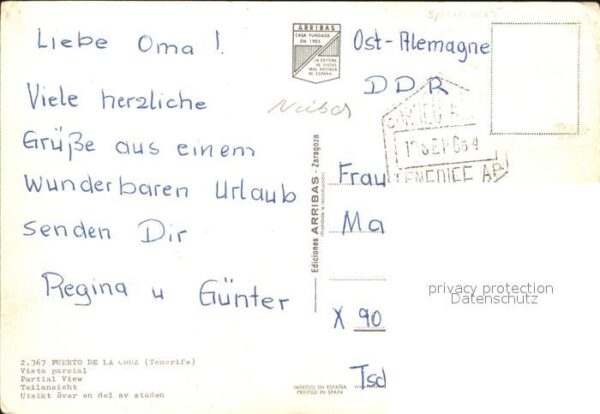 Liebe Oma!
Viele herzliche
Grüße aus einem
wunderbaren Urlaub
senden Dir
Regina u Günter
2.367 PUERTO DE LA CRUZ (Tenerife)
Vista parcial
Partial View
Teilansicht
Utsikt över en del av staden
ARRIBAS
CASA FUNDADA
EN 1905
LA EDITORA
DE VISTAS
MAS ANTIGUA
DE ESPAÑA
Ediciones ARRIBAS - Zaragoza
IMPRESO EN ESPAÑA
PRINTED IN SPAIN
Ost-Alemagne
DDR
Frau
Ma
X 90
Tsc
privacy protection
Datenschutz